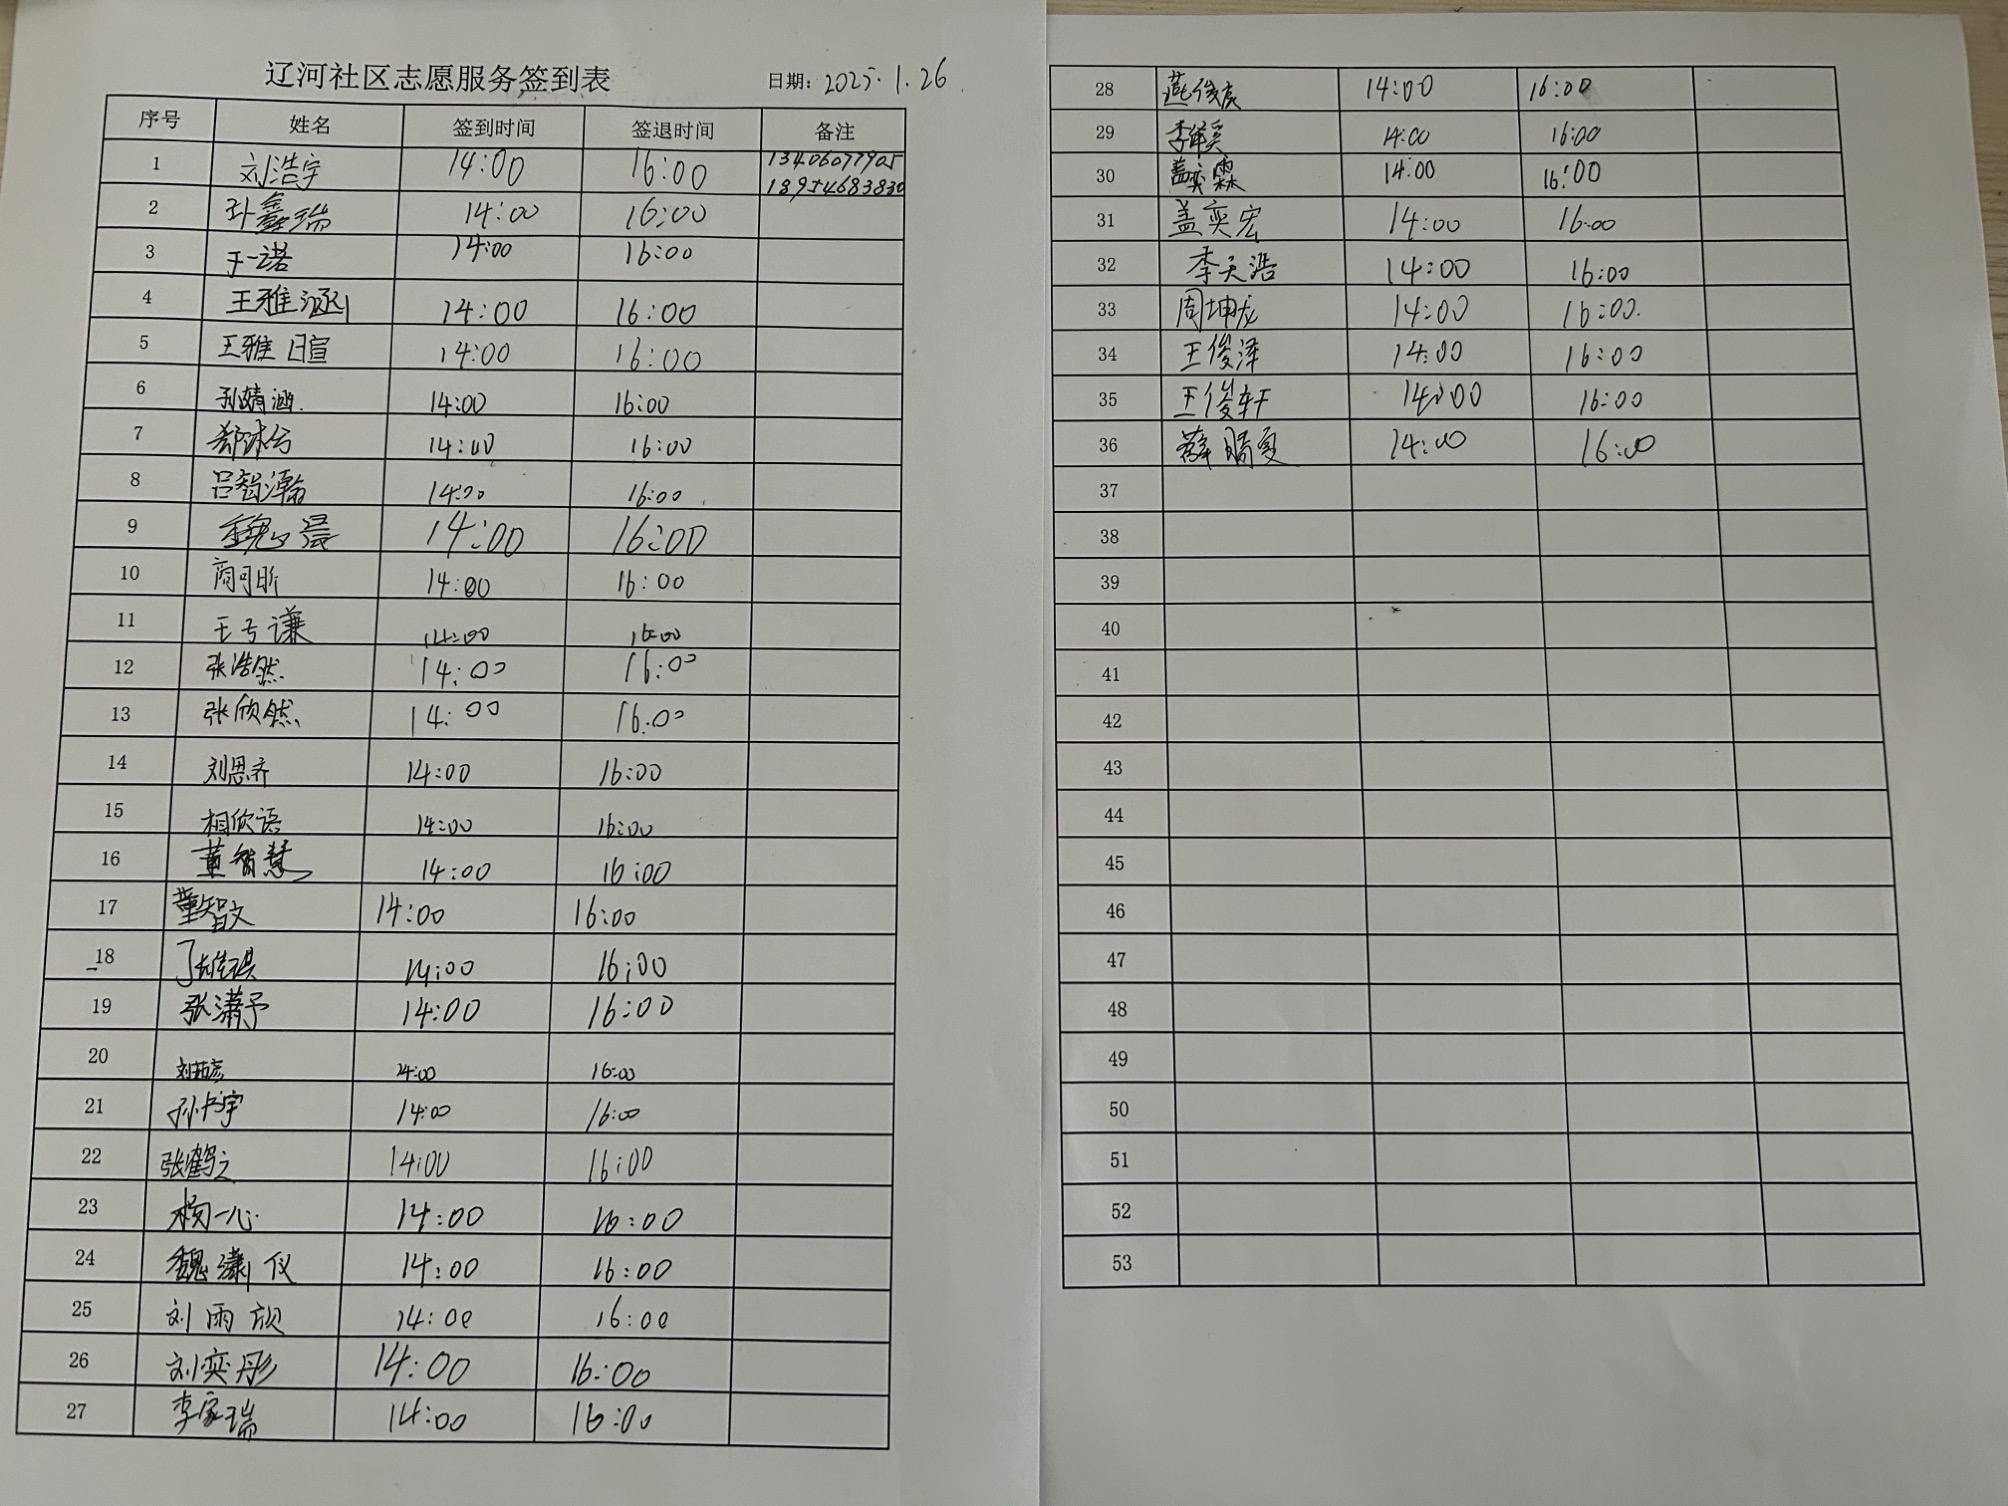 辽河社区志愿服务签到表 日期: 2025.1.26
序号 姓名 签到时间 签退时间 备注
1 刘浩宇 14:00 16:00 13406077905
18954683830
2 孙鑫瑞 14:00 16:00
3 于一诺 14:00 16:00
4 王雅涵 14:00 16:00
5 王雅暄 14:00 16:00
6 孙婧涵 14:00 16:00
7 14:00 16:00
8 吕智瀚 14:00 16:00
9 魏晨 14:00 16:00
10 商可昕 14:00 16:00
11 王亏谦 14:00 16:00
12 张浩然 14:00 16:00
13 张欣然 14:00 16:00
14 刘恩齐 14:00 16:00
15 相欣语 14:00 16:00
16 董智慧 14:00 16:00
17 董智文 14:00 16:00
18 14:00 16:00
19 张潇予 14:00 16:00
20 14:00 16:00
21 14:00 16:00
22 张鹤之 14:00 16:00
23 杨一心 14:00 16:00
24 魏潇仪 14:00 16:00
25 刘雨欣 14:00 16:00
26 刘奕彤 14:00 16:00
27 李家瑞 14:00 16:00
28 14:00 16:00
29 14:00 16:00
30 盖奕霖 14:00 16:00
31 盖奕宏 14:00 16:00
32 李天浩 14:00 16:00
33 周坤龙 14:00 16:00
34 王俊泽 14:00 16:00
35 王俊轩 14:00 16:00
36 薛晴夏 14:00 16:00
37
38
39
40
41
42
43
44
45
46
47
48
49
50
51
52
53